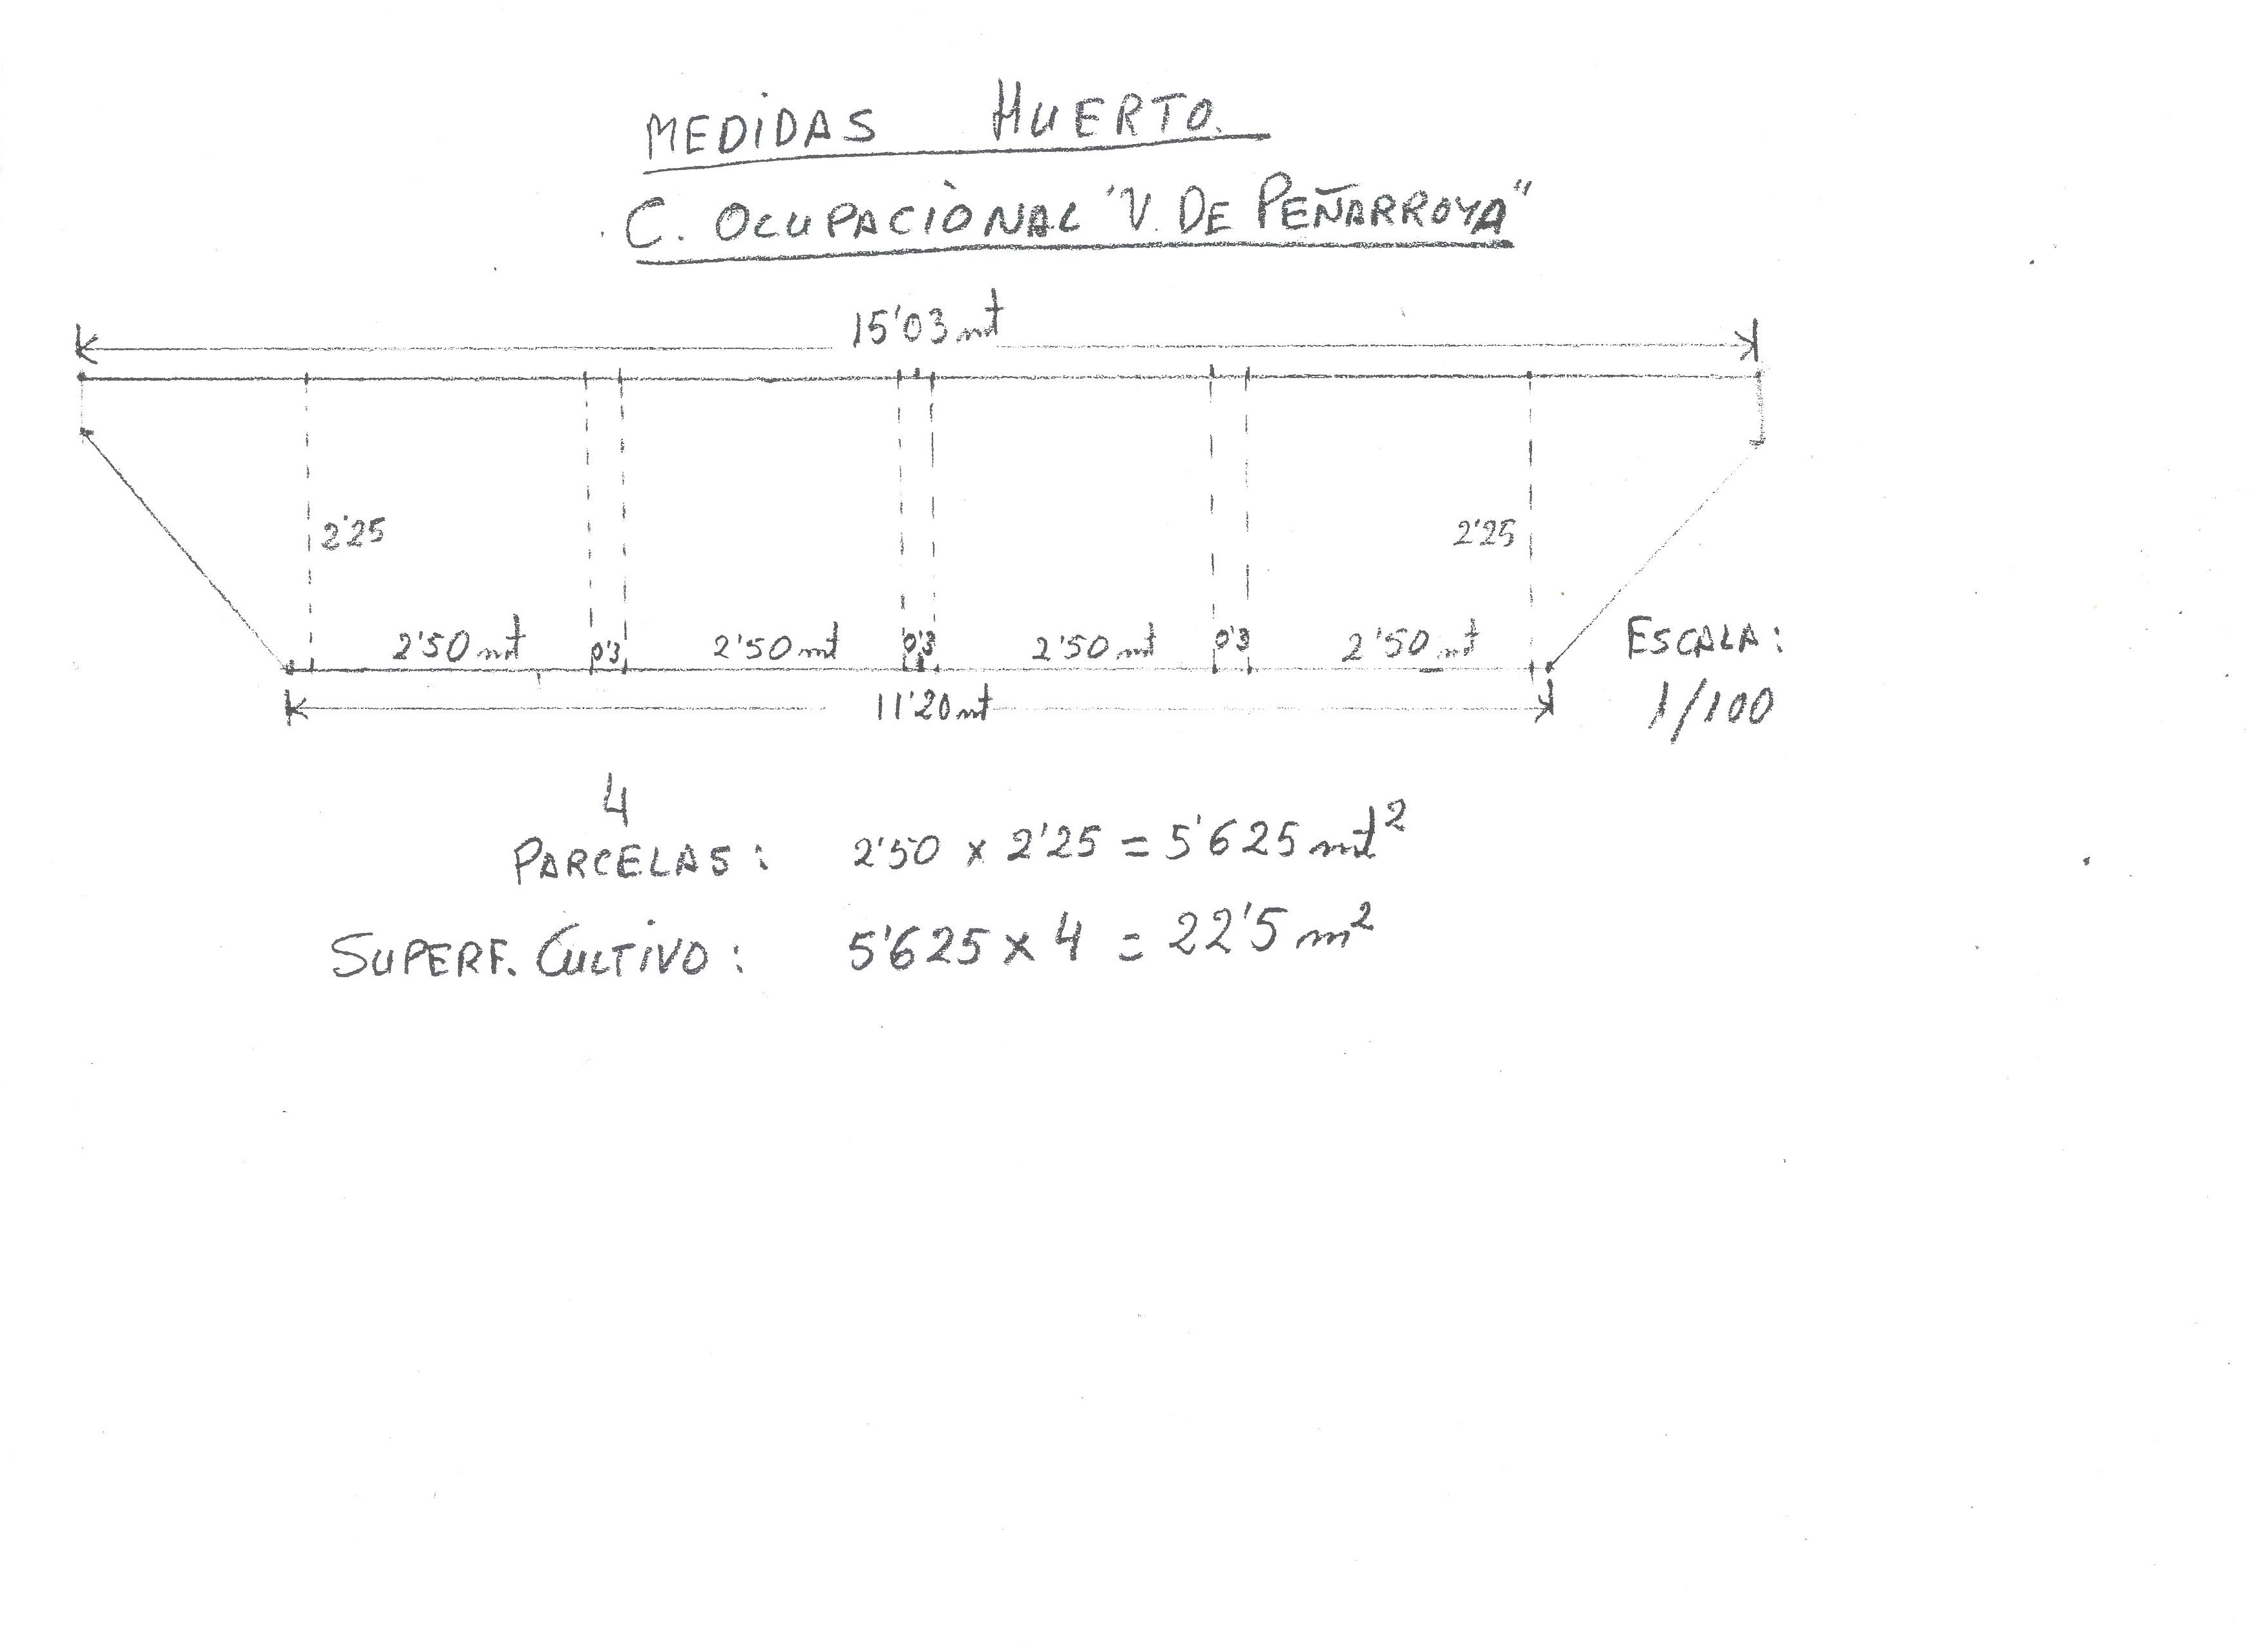 MEDIDAS HUERTO.
C. OCUPACIÒNAL "V. DE PEÑARROYA"
15'03 mt
2'25
2'25
2'50 mt 0'3 2'50 mt 0'3 2'50 mt 0'3 2'50 mt
11'20 mt
ESCALA:
1/100
4
PARCELAS: 2'50 x 2'25 = 5'625 mt²
SUPERF. CULTIVO: 5'625 x 4 = 22'5 m²